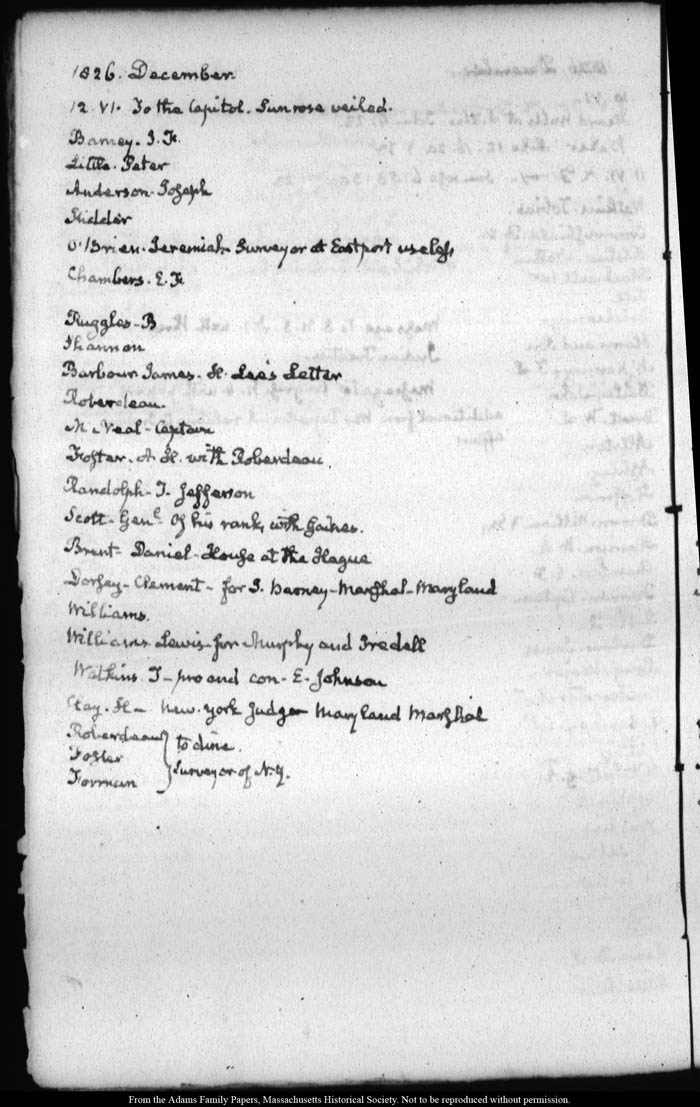 1826. December.
12. VI. To the Capitol. Sun rose veiled.
Barney. I. F.
Little. Peter
Anderson. Joseph
Kidder
O'Brien. Jeremiah. Surveyor at Eastport
Chambers. E. F.
Ruggles. B
Shannon
Barbour James. H. Lee's Letter
Roberdeau.
McNeal. Captain
Foster. A. H. with Roberdeau.
Randolph. T. Jefferson
Scott. Genl. Of his rank, with Gaines.
Brent. Daniel. House at the Hague
Dorsey. Clement - for I. Barney. Marshal. Maryland
Williams.
Williams Lewis. for Murphy and Iredell
Watkins. T - pro and con. E. Johnson
Clay. H - New-York Judge - Maryland Marshal
Roberdeau
Foster
to dine.
Forman
Surveyor of N.Y.
From the Adams Family Papers, Massachusetts Historical Society. Not to be reproduced without permission.